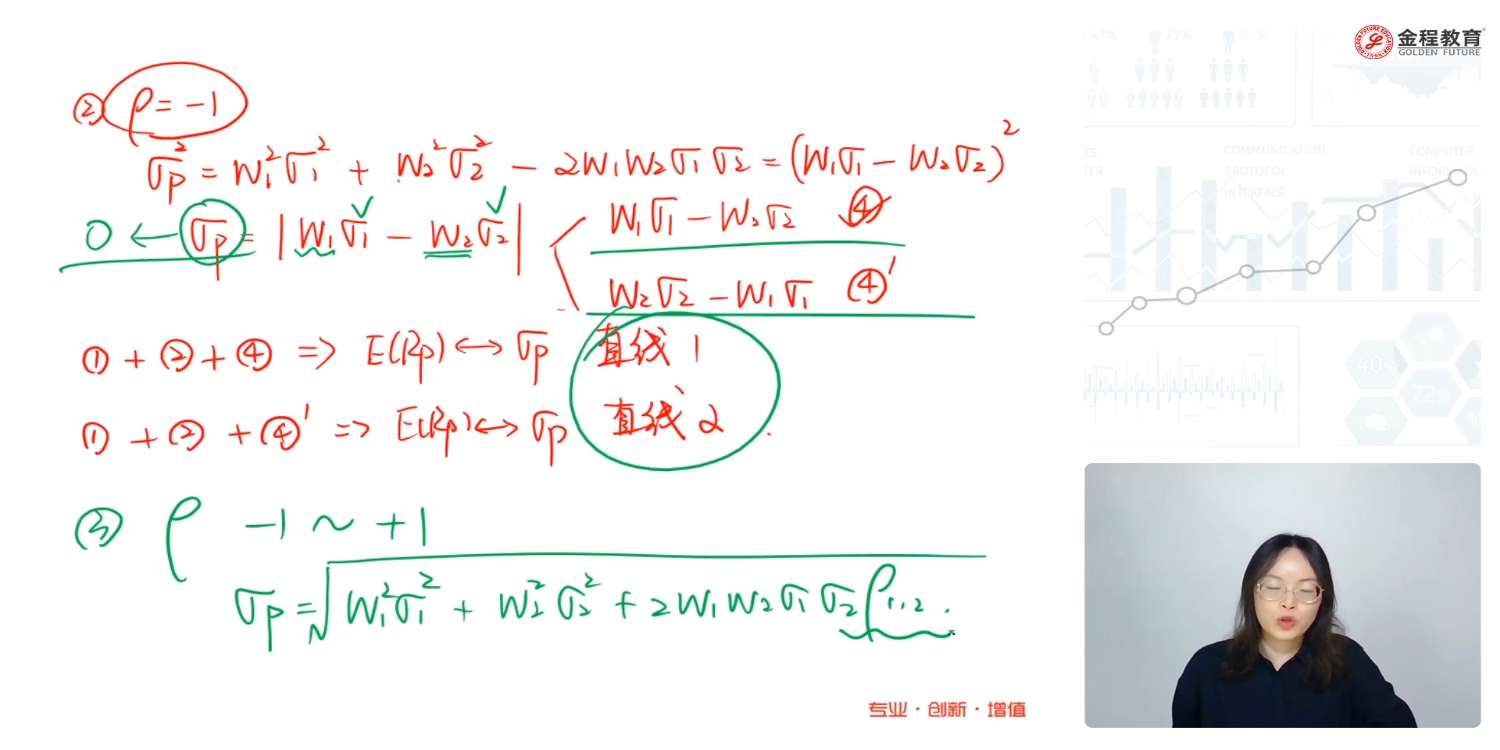 金程教育
GOLDEN FUTURE
② ρ = -1
σp² = W₁²σ₁² + W₂²σ₂² - 2W₁W₂σ₁σ₂ = (W₁σ₁ - W₂σ₂)²
0 ← σp = |W₁σ₁ - W₂σ₂|
W₁σ₁ - W₂σ₂ ④
W₂σ₂ - W₁σ₁ ④'
① + ② + ④ => E(Rp) ↔ σp 直线1
① + ② + ④' => E(Rp) ↔ σp 直线2
③ ρ -1 ~ +1
σp = √W₁²σ₁² + W₂²σ₂² + 2W₁W₂σ₁σ₂ρ₁,₂.
专业·创新·增值
COMMUNICATION
PROTOCOL
INTERFACE
COMPUTER
40%